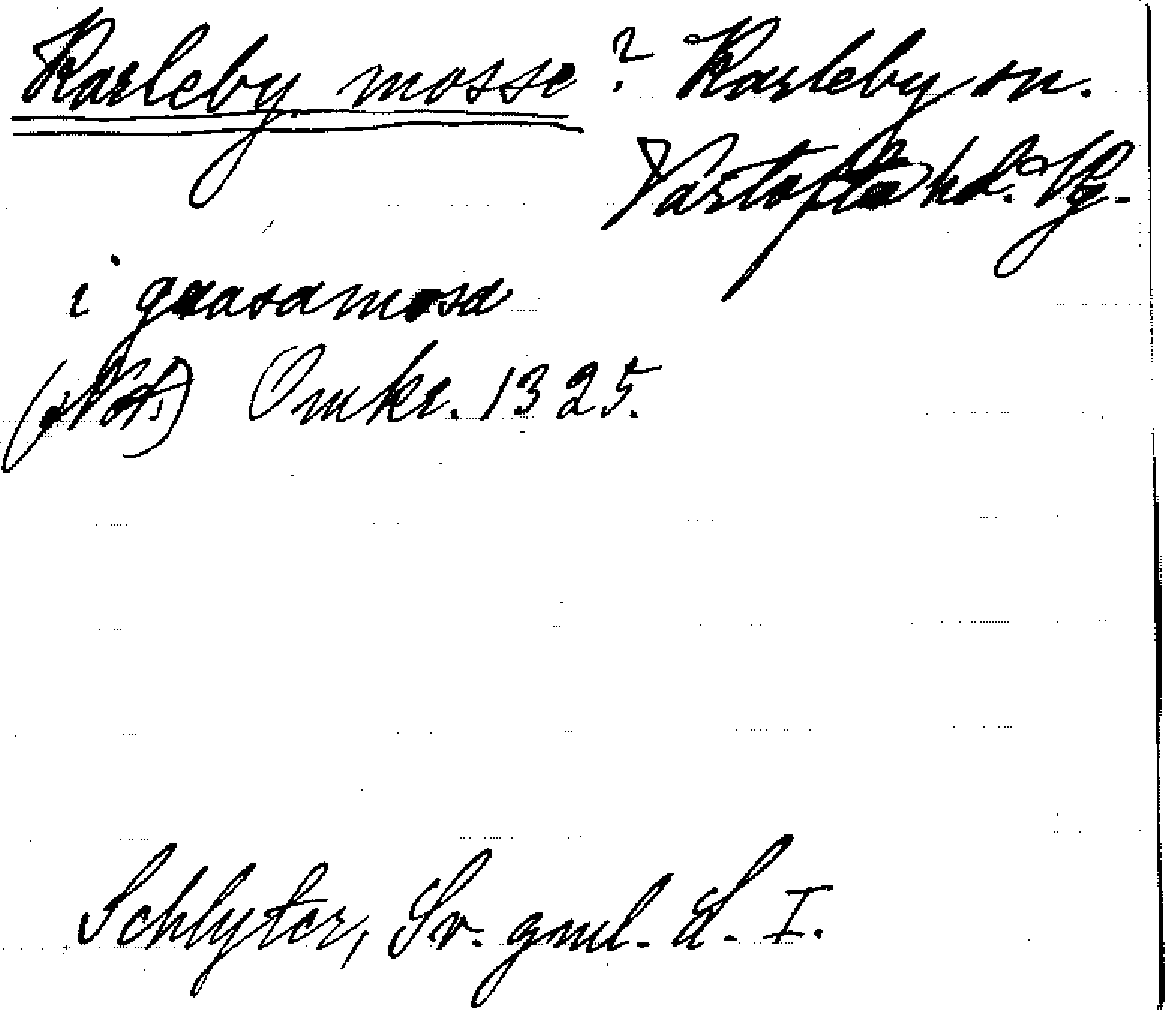 Karleby mosse ? Karleby sn.
Vartofta hd. Vg.
i gaasamosa
(Not.) Omkr. 1325.
Schlyter, Sv. gml. L. I.